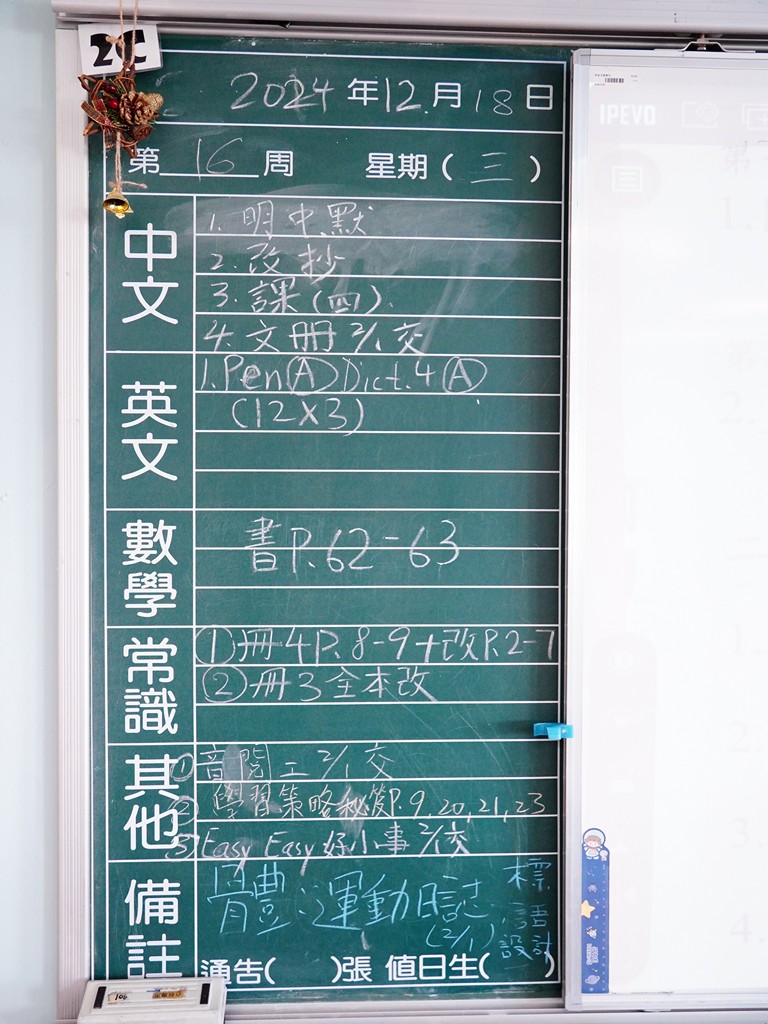 2C
2024年12月18日
第16周 星期(三)
中文
1. 明中默
2. 改抄
3. 課(四).
4. 文冊 2/1交
英文
1. Pen(A) Dict.4(A)
(12X3)
數學
書P.62-63
常識
①冊4P.8-9+改P.2-7
②冊3全本改
其他
①音閱工 2/1交
②學習策略秘笈P.9,20,21,23
③Easy Easy好小事 2/1交
備註
體:運動日誌 (2/1)
標語設計
通告( )張 值日生( )
IPEVO